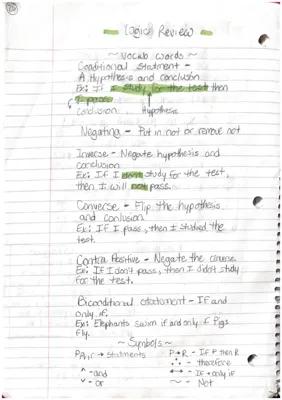 Logic Review
~ Vocab words ~
Conditional statment -
A Hypothesis and conclusion
Ex: If I study for the test then
I pass.
Conclusion Hypothesis
Negating - Put in not or remove not
Inverse - Negate hypothesis and
conclusion
Ex: If I don't study for the test,
then I will not pass.
Converse - Flip the hypothesis
and conlusion
Ex: If I pass, then I studied the
test.
Contra Positive - Negate the converse
Ex: If I don't pass, then I didn't study
for the test.
Biconditional statement - If and
only if.
Ex: Elephants swim if and only if Pigs
fly.
~ Symbols ~
P,Q,r → Statments P→R - If P then R
^ - and ∴ - therefore
v - or ↔ - if and only if
~ - Not